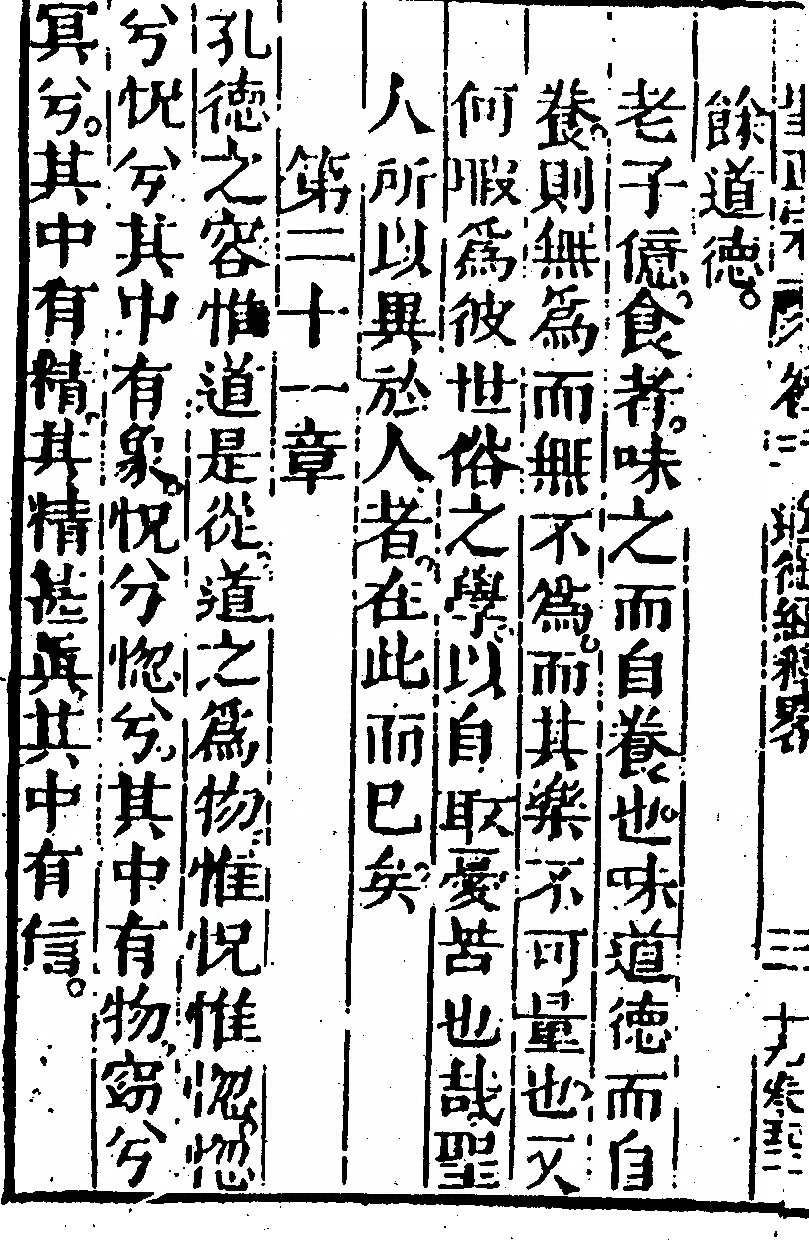 餘道德
老子億食者味之而自養也味道德而自
養則無爲而無不爲而其樂不可量也又
何暇爲彼世俗之學以自取憂苦也哉聖
人所以異於人者在此而已矣
第二十一章
孔德之容惟道是從道之爲物惟怳惟惚惚
兮怳兮其中有象怳兮惚兮其中有物窈兮
冥兮其中有精其精甚眞其中有信